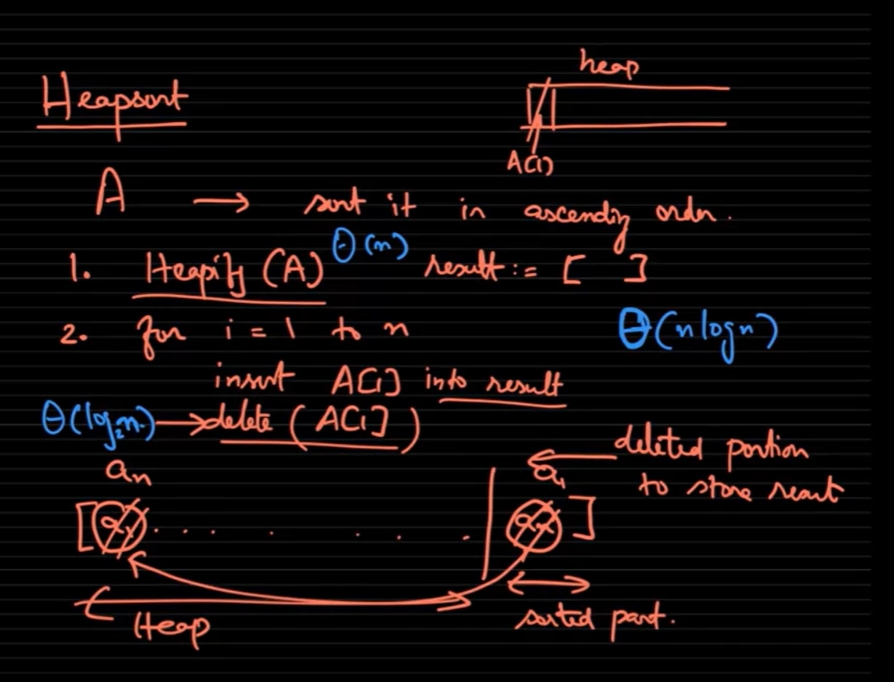 Heapsort
heap
A[1]
A → sort it in ascending order.
1. Heapify (A) Θ(n) result := [ ]
2. for i = 1 to n
Θ(n log n)
insert A[1] into result
Θ(log₂n) → delete (A[1])
deleted portion
to store result
aₙ
a₁
[ a₁ . . . . . . | aₙ ]
Heap
sorted part.